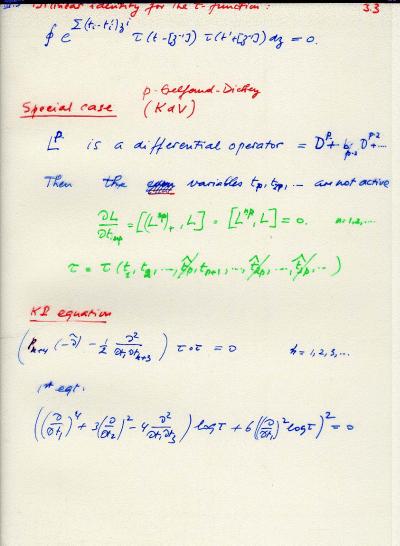 bilinear identity for the τ-function: 3.3
∮ e^{Σ(t_i - t_i')z^i} τ(t-[z⁻¹]) τ(t'+[z⁻¹]) dz = 0.
p-Gelfand-Dickey
Special case (KdV)
L^p is a differential operator = D^p + b_{p-2} D^{p-2} + ....
Then the variables t_p, t_{2p}, .. are not active
∂L/∂t_{np} = [(L^{np})_+, L] = [L^{np}, L] = 0. n=1,2,...
τ = τ(t_1, t_2, ..., t̂_p, t_{p+1}, ..., t̂_{2p}, ..., t̂_{3p}, ...)
KP equation
(p_{n+4}(-∂̃) - 1/2 ∂²/∂t_1∂t_{n+3}) τ∘τ = 0 n=1,2,3,...
1st eqt.
((∂/∂t_1)^4 + 3(∂/∂t_2)^2 - 4 ∂²/∂t_1∂t_3) log τ + 6((∂/∂t_1)^2 log τ)^2 = 0